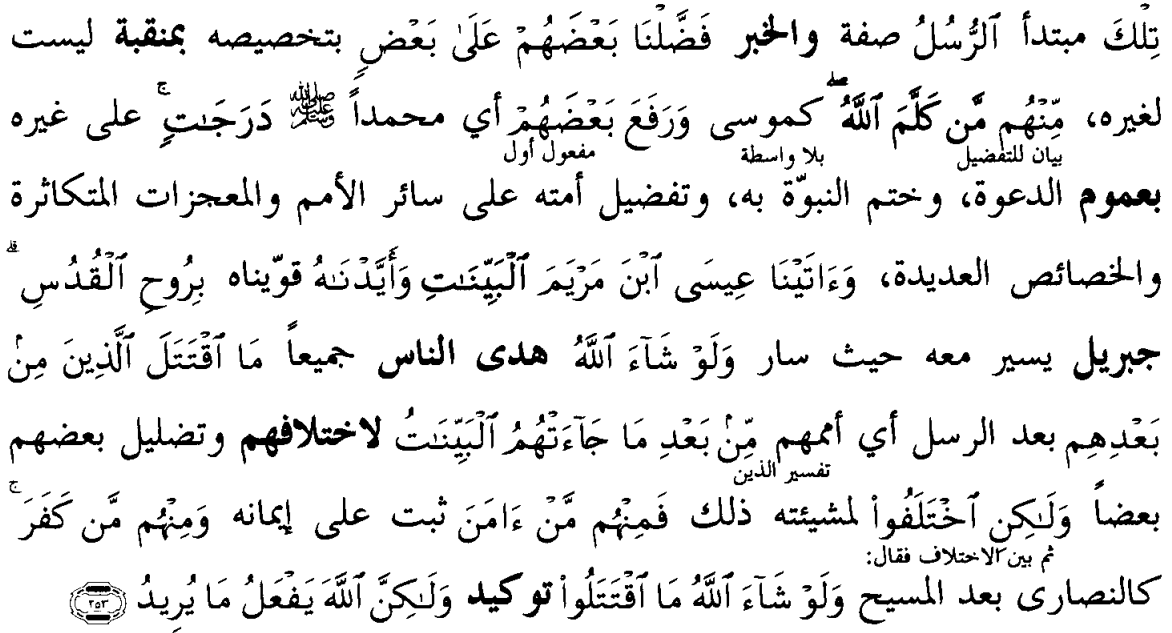 تِلْكَ مبتدأ ٱلرُّسُلُ صفة والخبر فَضَّلْنَا بَعْضَهُمْ عَلَىٰ بَعْضٍ بتخصيصه بمنقبة ليست
لغيره، مِّنْهُم مَّن كَلَّمَ ٱللَّهُۖ كموسى وَرَفَعَ بَعْضَهُمْ أي محمداً ﷺ دَرَجَٰتٍۚ على غيره
بيان للتفضيل بلا واسطة مفعول أول
بعموم الدعوة، وختم النبوّة به، وتفضيل أمته على سائر الأمم والمعجزات المتكاثرة
والخصائص العديدة، وَءَاتَيْنَا عِيسَى ٱبْنَ مَرْيَمَ ٱلْبَيِّنَٰتِ وَأَيَّدْنَٰهُ قوّيناه بِرُوحِ ٱلْقُدُسِۗ
جبريل يسير معه حيث سار وَلَوْ شَآءَ ٱللَّهُ هدى الناس جميعاً مَا ٱقْتَتَلَ ٱلَّذِينَ مِنۢ
بَعْدِهِم بعد الرسل أي أممهم مِّنۢ بَعْدِ مَا جَآءَتْهُمُ ٱلْبَيِّنَٰتُ لاختلافهم وتضليل بعضهم
تفسير الذين
بعضاً وَلَٰكِنِ ٱخْتَلَفُوا۟ لمشيئته ذلك فَمِنْهُم مَّنْ ءَامَنَ ثبت على إيمانه وَمِنْهُم مَّن كَفَرَۚ
ثم بين الاختلاف فقال:
كالنصارى بعد المسيح وَلَوْ شَآءَ ٱللَّهُ مَا ٱقْتَتَلُوا۟ توكيد وَلَٰكِنَّ ٱللَّهَ يَفْعَلُ مَا يُرِيدُ ٢٥٣